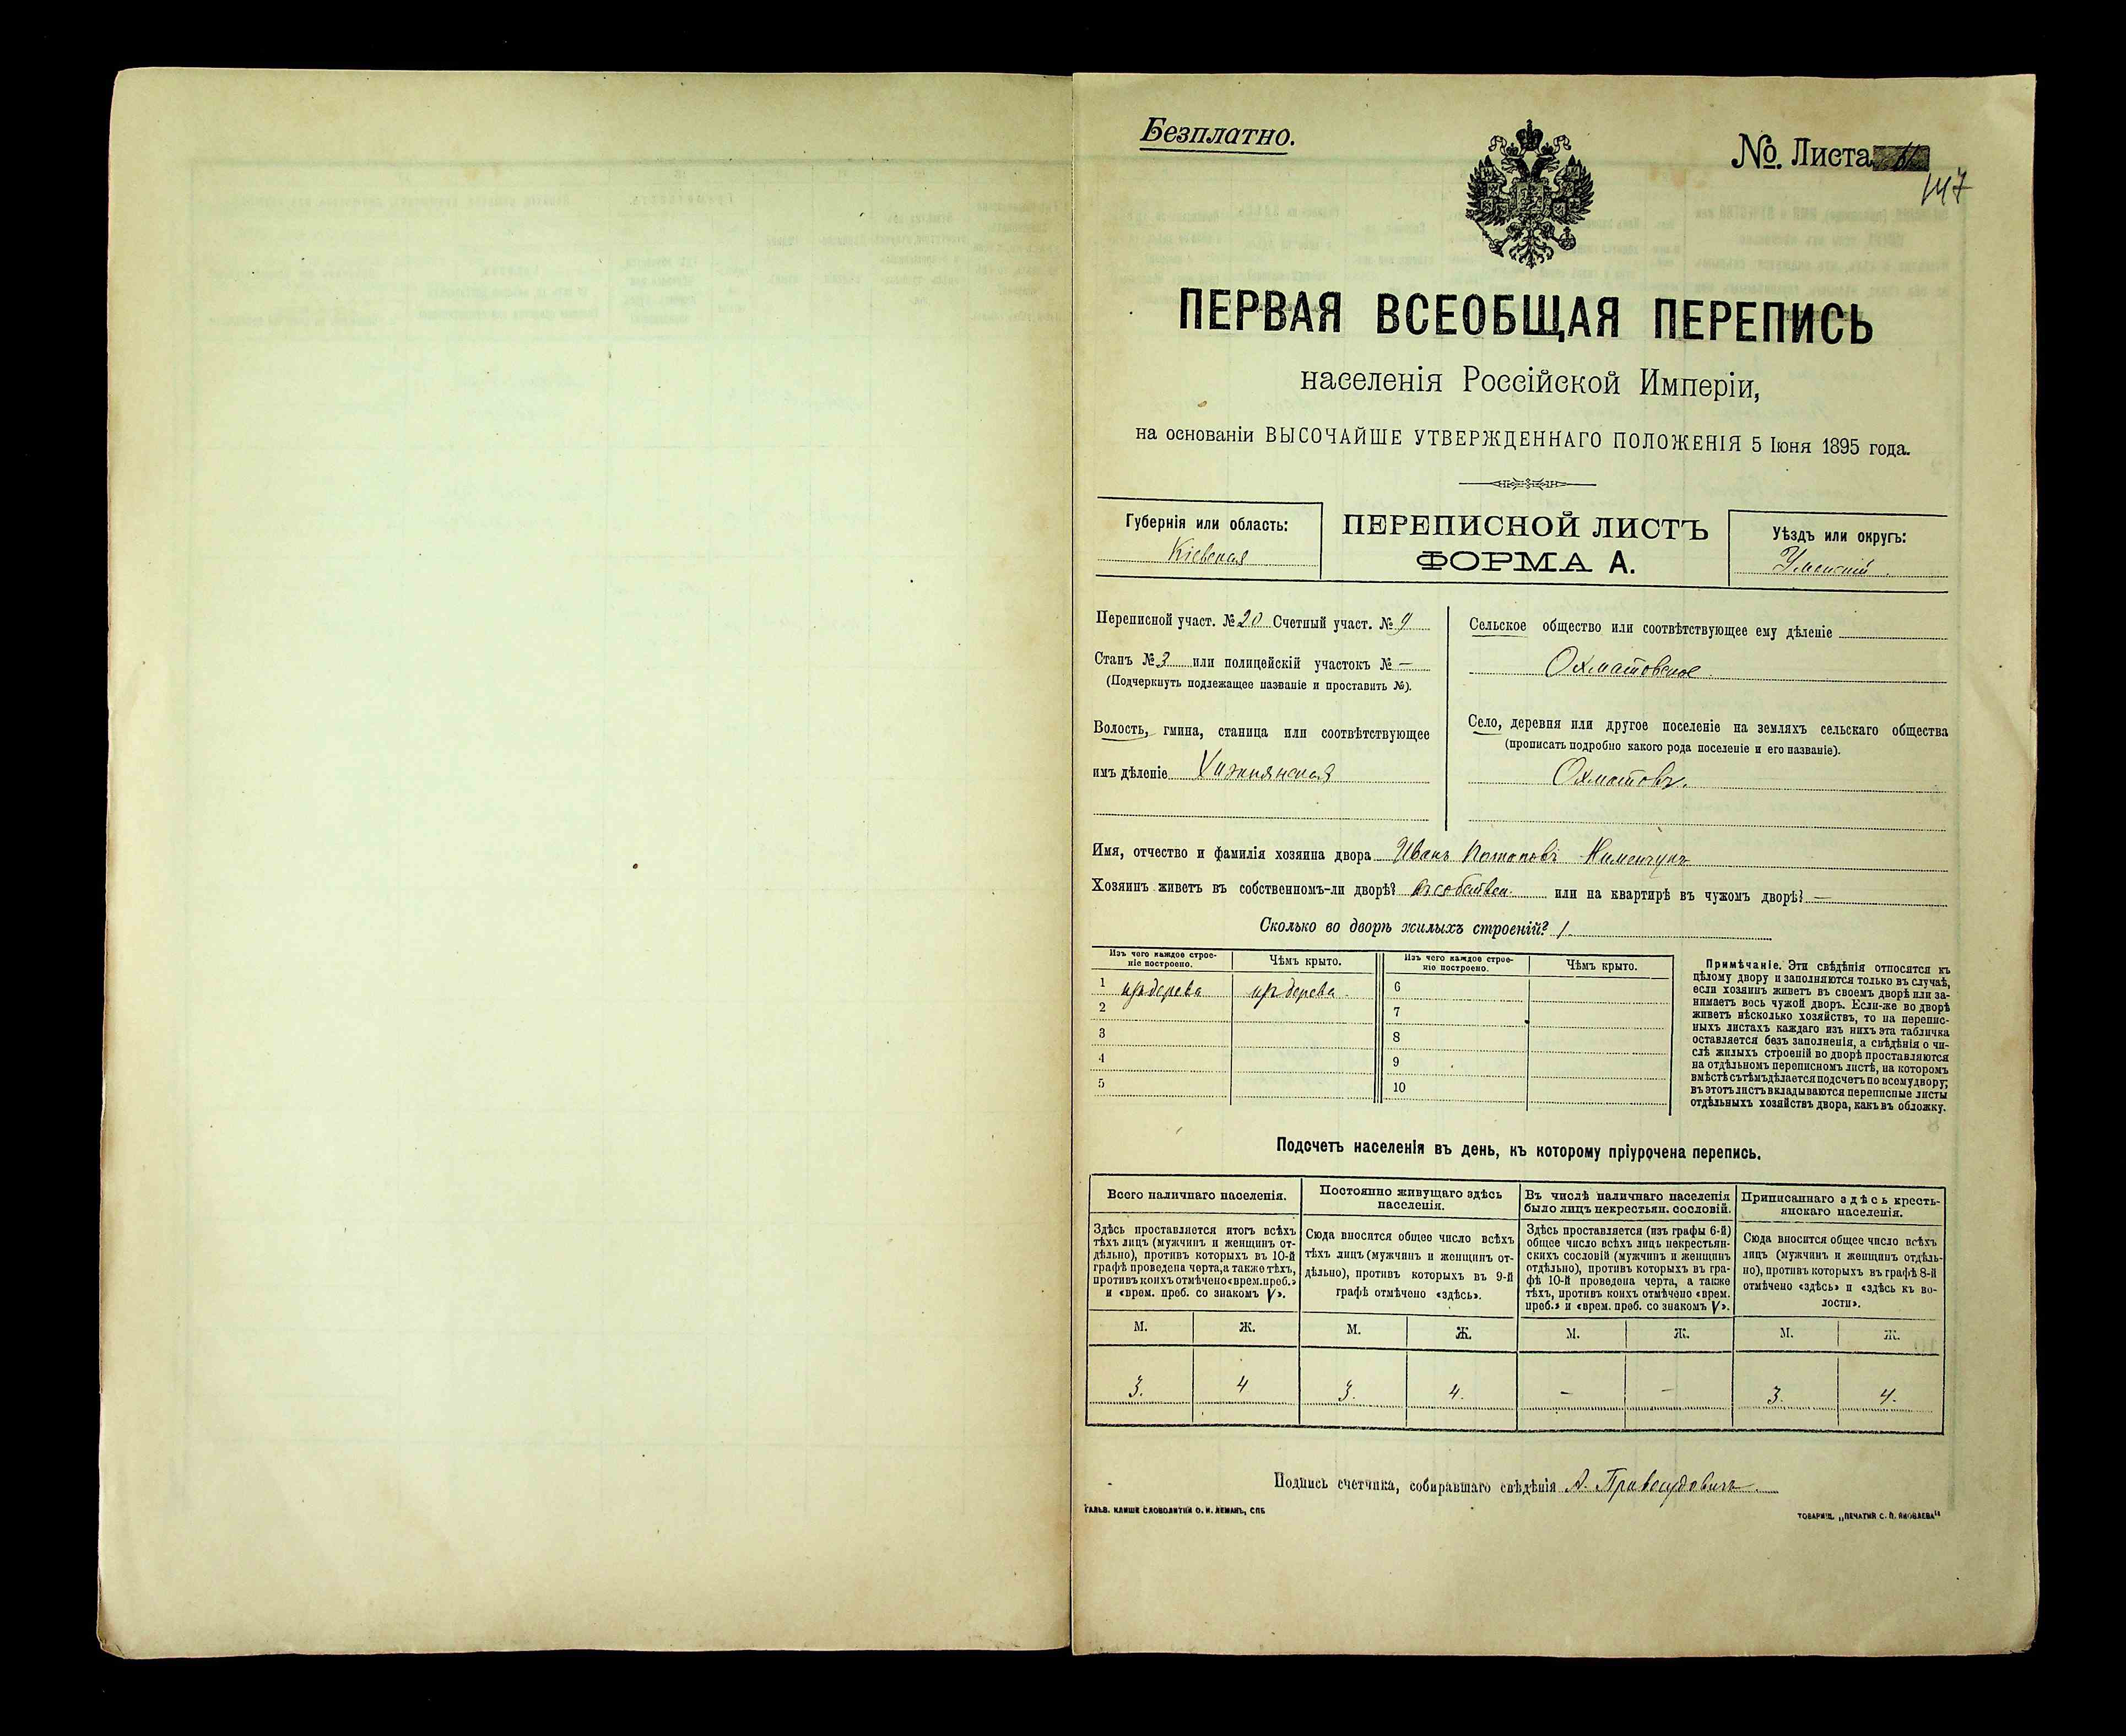 Безплатно.
№ Листа
147
ПЕРВАЯ ВСЕОБЩАЯ ПЕРЕПИСЬ
населенія Россійской Имперіи,
на основаніи ВЫСОЧАЙШЕ УТВЕРЖДЕННАГО ПОЛОЖЕНІЯ 5 Іюня 1895 года.
Губернія или область:
Кіевская
ПЕРЕПИСНОЙ ЛИСТЪ
ФОРМА А.
Уѣздъ или округъ:
Уманскій
Переписной участ. № 20 Счетный участ. № 9
Станъ № 3 или полицейскій участокъ № —
(Подчеркнуть подлежащее названіе и проставить №).
Волость, гмина, станица или соотвѣтствующее
имъ дѣленіе
Сельское общество или соотвѣтствующее ему дѣленіе
Охматовское.
Село, деревня или другое поселеніе на земляхъ сельскаго общества
(прописать подробно какого рода поселеніе и его названіе).
Охматовъ.
Имя, отчество и фамилія хозяина двора Иванъ Потаповъ
Хозяинъ живетъ въ собственномъ-ли дворѣ? въ собствен. или на квартирѣ въ чужомъ дворѣ? —
Сколько во дворѣ жилыхъ строеній? 1.
Изъ чего каждое строе-
ніе построено.
Чѣмъ крыто.
Изъ чего каждое строе-
ніе построено.
Чѣмъ крыто.
1 изъ дерева изъ дерева.
2
3
4
5
6
7
8
9
10
Примѣчаніе. Эти свѣдѣнія относятся къ
цѣлому двору и заполняются только въ случаѣ,
если хозяинъ живетъ въ своемъ дворѣ или за-
нимаетъ весь чужой дворъ. Если-же во дворѣ
живетъ нѣсколько хозяйствъ, то на перепис-
ныхъ листахъ каждаго изъ нихъ эта табличка
оставляется безъ заполненія, а свѣдѣнія о чи-
слѣ жилыхъ строеній во дворѣ проставляются
на отдѣльномъ переписномъ листѣ, на которомъ
вмѣстѣ съ тѣмъ дѣлается подсчетъ по всему двору;
въ этотъ листъ вкладываются переписные листы
отдѣльныхъ хозяйствъ двора, какъ въ обложку.
Подсчетъ населенія въ день, къ которому пріурочена перепись.
Всего наличнаго населенія.
Здѣсь проставляется итогъ всѣхъ
тѣхъ лицъ (мужчинъ и женщинъ от-
дѣльно), противъ которыхъ въ 10-й
графѣ проведена черта, а также тѣхъ,
противъ коихъ отмѣчено «врем. преб.»
и «врем. преб. со знакомъ V».
Постоянно живущаго здѣсь
населенія.
Сюда вносится общее число всѣхъ
тѣхъ лицъ (мужчинъ и женщинъ от-
дѣльно), противъ которыхъ въ 9-й
графѣ отмѣчено «здѣсь».
Въ числѣ наличнаго населенія
было лицъ некрестьян. сословій.
Здѣсь проставляется (изъ графы 6-й)
общее число всѣхъ лицъ некрестьян-
скихъ сословій (мужчинъ и женщинъ
отдѣльно), противъ которыхъ въ гра-
фѣ 10-й проведена черта, а также
тѣхъ, противъ коихъ отмѣчено «врем.
преб.» и «врем. преб. со знакомъ V».
Приписаннаго здѣсь кресть-
янскаго населенія.
Сюда вносится общее число всѣхъ
лицъ (мужчинъ и женщинъ отдѣль-
но), противъ которыхъ въ графѣ 8-й
отмѣчено «здѣсь» и «здѣсь къ во-
лости».
М. Ж. М. Ж. М. Ж. М. Ж.
3. 4 3. 4. — — 3. 4.
Подпись счетчика, собиравшаго свѣдѣнія А. Правосудовичъ.
ГАЛЬВ. КЛИШЕ СЛОВОЛИТНИ О. И. ЛЕМАНЪ, СПБ
ТОВАРИЩ. „ПЕЧАТНЯ С. П. ЯКОВЛЕВА“